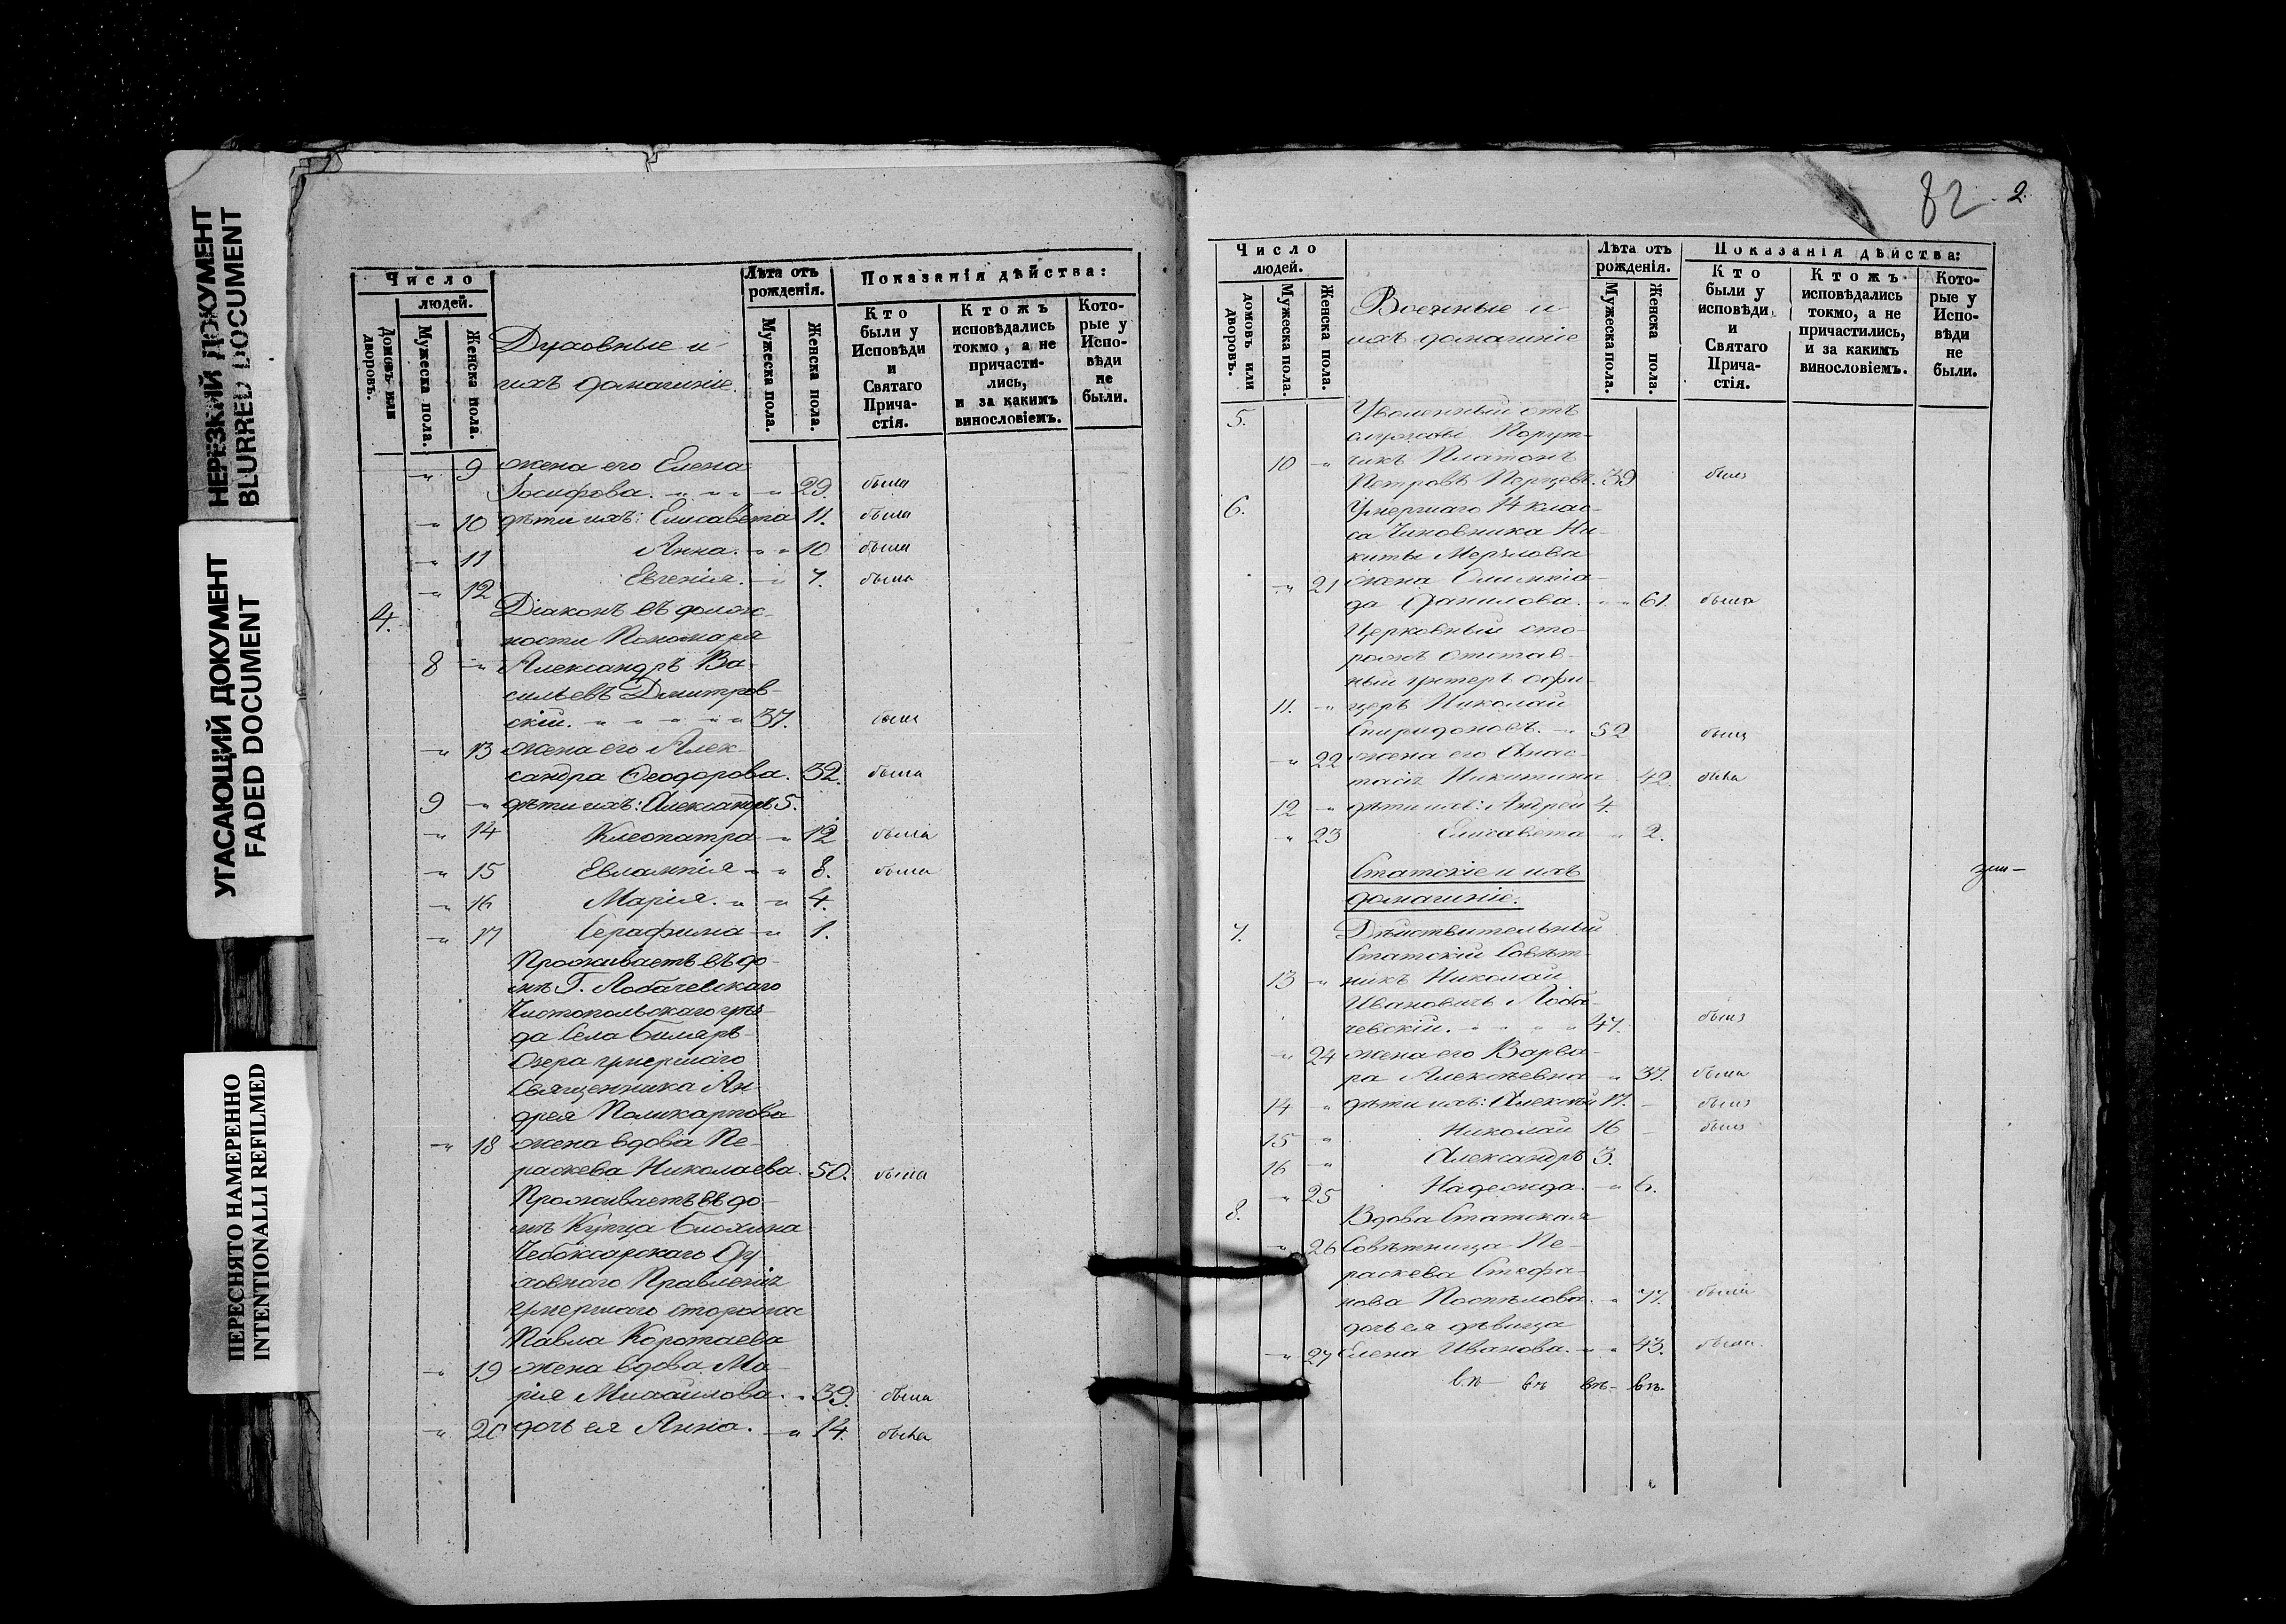 НЕРЕЗКИЙ ДОКУМЕНТ
BLURRED DOCUMENT
УГАСАЮЩИЙ ДОКУМЕНТ
FADED DOCUMENT
ПЕРЕСНЯТО НАМЕРЕННО
INTENTIONALLI REFILMED
Число
людей.
Домовъ или дворовъ.
Мужеска пола.
Женска пола.
Духовные и
ихъ домашніе.
Лѣта отъ рожденія.
Мужеска пола.
Женска пола.
Показанія дѣйства:
Кто были у Исповѣди и Святаго Прича-стія.
Ктожъ исповѣдались токмо, а не причасти-лись, и за какимъ винословіемъ.
Кото-рые у Испо-вѣди не были.
" 9 жена его Елена
Іосифова. " " " " 29. была
" 10 дѣти ихъ: Елисавета 11. была
" 11 Анна. " " 10 была
" 12 Евгенія. " 7. была
4. Діаконъ въ долж-
ности Пономаря
8 " Александръ Ва-
сильевъ Димитров-
скій. " " " " " 37. былъ
" 13 жена его Алек-
сандра Ѳеодорова. 32. была
9 " дѣти ихъ: Александръ 5.
" 14 Клеопатра " 12 была
" 15 Евлампія " " 8. была
" 16 Марія. " " 4.
" 17 Серафима " 1.
Проживаетъ въ до-
мѣ Г. Лобачевскаго
Чистопольскаго уѣз-
да Села Биляръ-
Озера умершаго
Священника Ан-
дрея Поликарпова
" 18 жена вдова Пе-
раскева Николаева. 50. была
Проживаетъ въ до-
мѣ Купца
Чебоксарскаго Ду-
ховнаго Правленія
умершаго сторожа
Павла Коротаева
" 19 жена вдова Ма-
рія Михаилова. " 39. была
" 20 дочь ея Анна. " 14. была
82. 2.
Число людей.
домовъ или дворовъ.
Мужеска пола.
Женска пола.
Военные и
ихъ домашніе
Лѣта отъ рожденія.
Мужеска пола.
Женска пола.
Показанія дѣйства:
Кто были у исповѣди и Святаго Прича-стія.
Ктожъ исповѣдались токмо, а не причастились, и за какимъ винословіемъ.
Кото-рые у Испо-вѣди не были.
5. Уволенный отъ
службы Порут-
10 " чикъ Платонъ
Петровъ 39 былъ
6. Умершаго 14 клас-
са Чиновника Ни-
киты
" 21 жена Олимпіа-
да Данилова. " " 61. была
Церковный сто-
рожъ отстав-
ный унтеръ офи-
11. " церъ Николай
Спиридоновъ. " 52 былъ
" 22 жена его Анас-
тасія Никитина 42. была
12 " дѣти ихъ: Андрей 4.
" 23 Елисавета " 2.
Статскіе и ихъ
домашніе.
7. Дѣйствительный
Статскій Совѣт-
13 " никъ Николай
Ивановичъ Лоба-
чевскій. " " " " 47. былъ
" 24 жена его Варва-
ра Алексѣевна " 37. была
14 " дѣти ихъ: Алексѣй 17. - былъ
15 " Николай 16 - былъ
16 " Александръ 3.
" 25 Надежда. " 6.
8. Вдова Статская
" 26 Совѣтница Пе-
раскева Стефа-
нова Поспѣлова. " 77. была
дочь ея дѣвица
" 27 Елена Иванова. " " 43. была